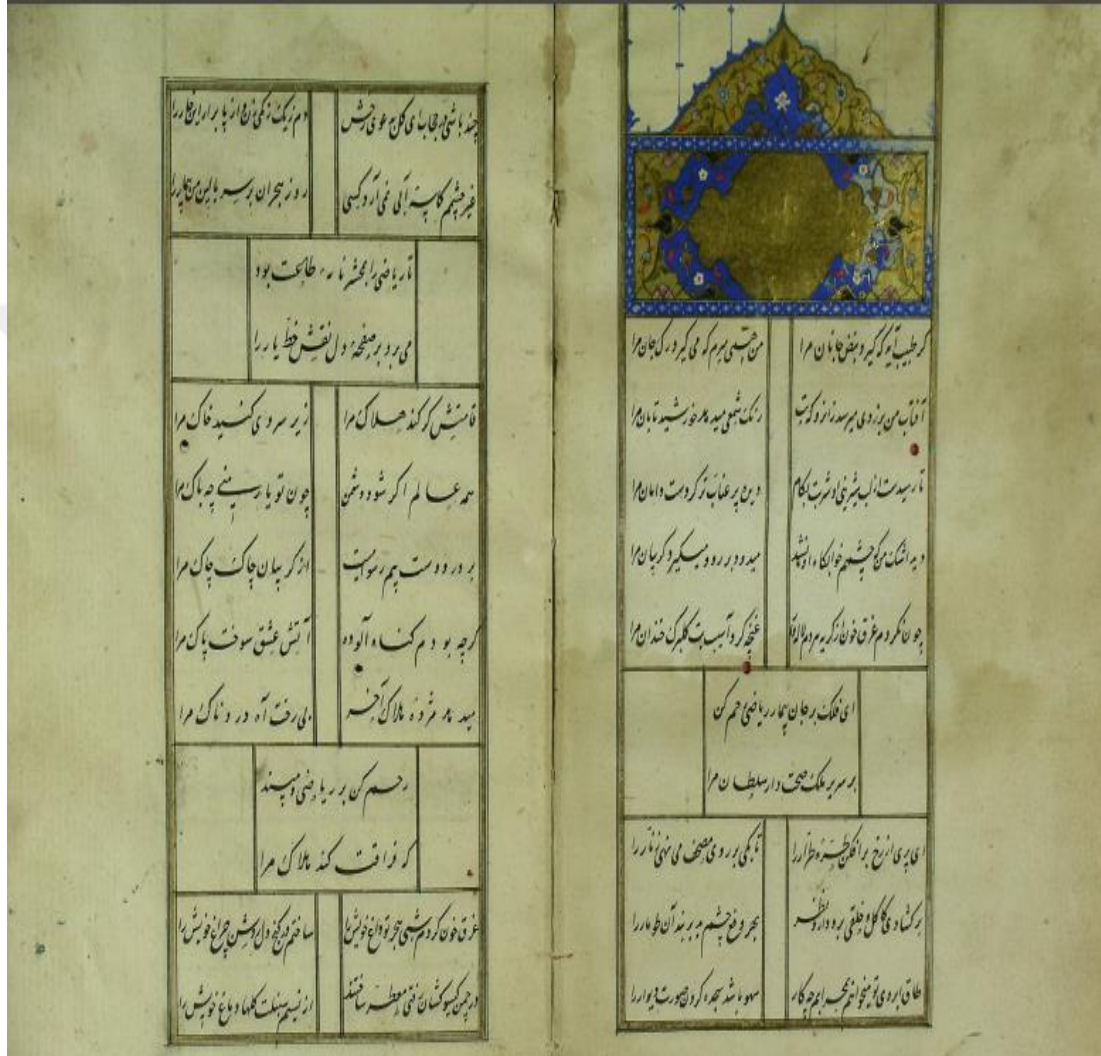 گر طبیب آید که گیرد نبض جانان مرا
من حسرتی میرم که می گیرد رگ جان مرا
آفتاب من بزودی میرسد زانرو که تب
رنگ شمعی میدهد خورشید تابان مرا
تا رسیدست از لب شیرینی او شربت بکام
دیده پر عناب تر کردست دامان مرا
دید اشک من که چشمم خوابگاه او نشد
میدود بر رو و میگیرد گریبان مرا
چون نگردم غرق خون از گریه مردم
غنچه کرد آسیب تب گلبرگ خندان مرا
ای فلک بر جان بیمار ریاضی رحم کن
بر سریر ملک صحت دار سلطان مرا
ای پری از رخ برافکن طره طرار را
تا بکی بر روی مصحف می نهی زنار را
برگشادی کاکل و خلقی برو دارد نظر
بهر دفع چشم بد بربند آن طومار را
طاق ابروی تو میخواهم بمحرابم چه کار
سهو باشد سجده کردن صورت دیوار را
چند باشی در حجاب ای گل به دعوی رخش
غیر چشمم کاسه آبی نمی آرد کسی
روز هجران بر سر بالین من بیمار را
تا ریاضی را بمحشر نامه طاعت بود
می برد بر صفحه دل نقش خط یار را
قامتش گر کند هلاک مرا
زیر سروی کنید خاک مرا
همه عالم اگر شود دشمن
چون تو یار منی چه باک مرا
بر در دوست بیم رسواییست
از گریبان چاک چاک مرا
گرچه بودم گناه آلوده
آتش عشق سوخت پاک مرا
میدهد مژده هلاک آخر
بی رخت آه دردناک مرا
رحم کن بر ریاضی و مپسند
که فراقت کند هلاک مرا
غرق خون کردم شبی هجر تو داغ خویش را
ساختم دل روشن چراغ خویش را
در چمن گیسو کشان رفتی معطر ساختند
از نسیم سنبلت گلها دماغ خویش را